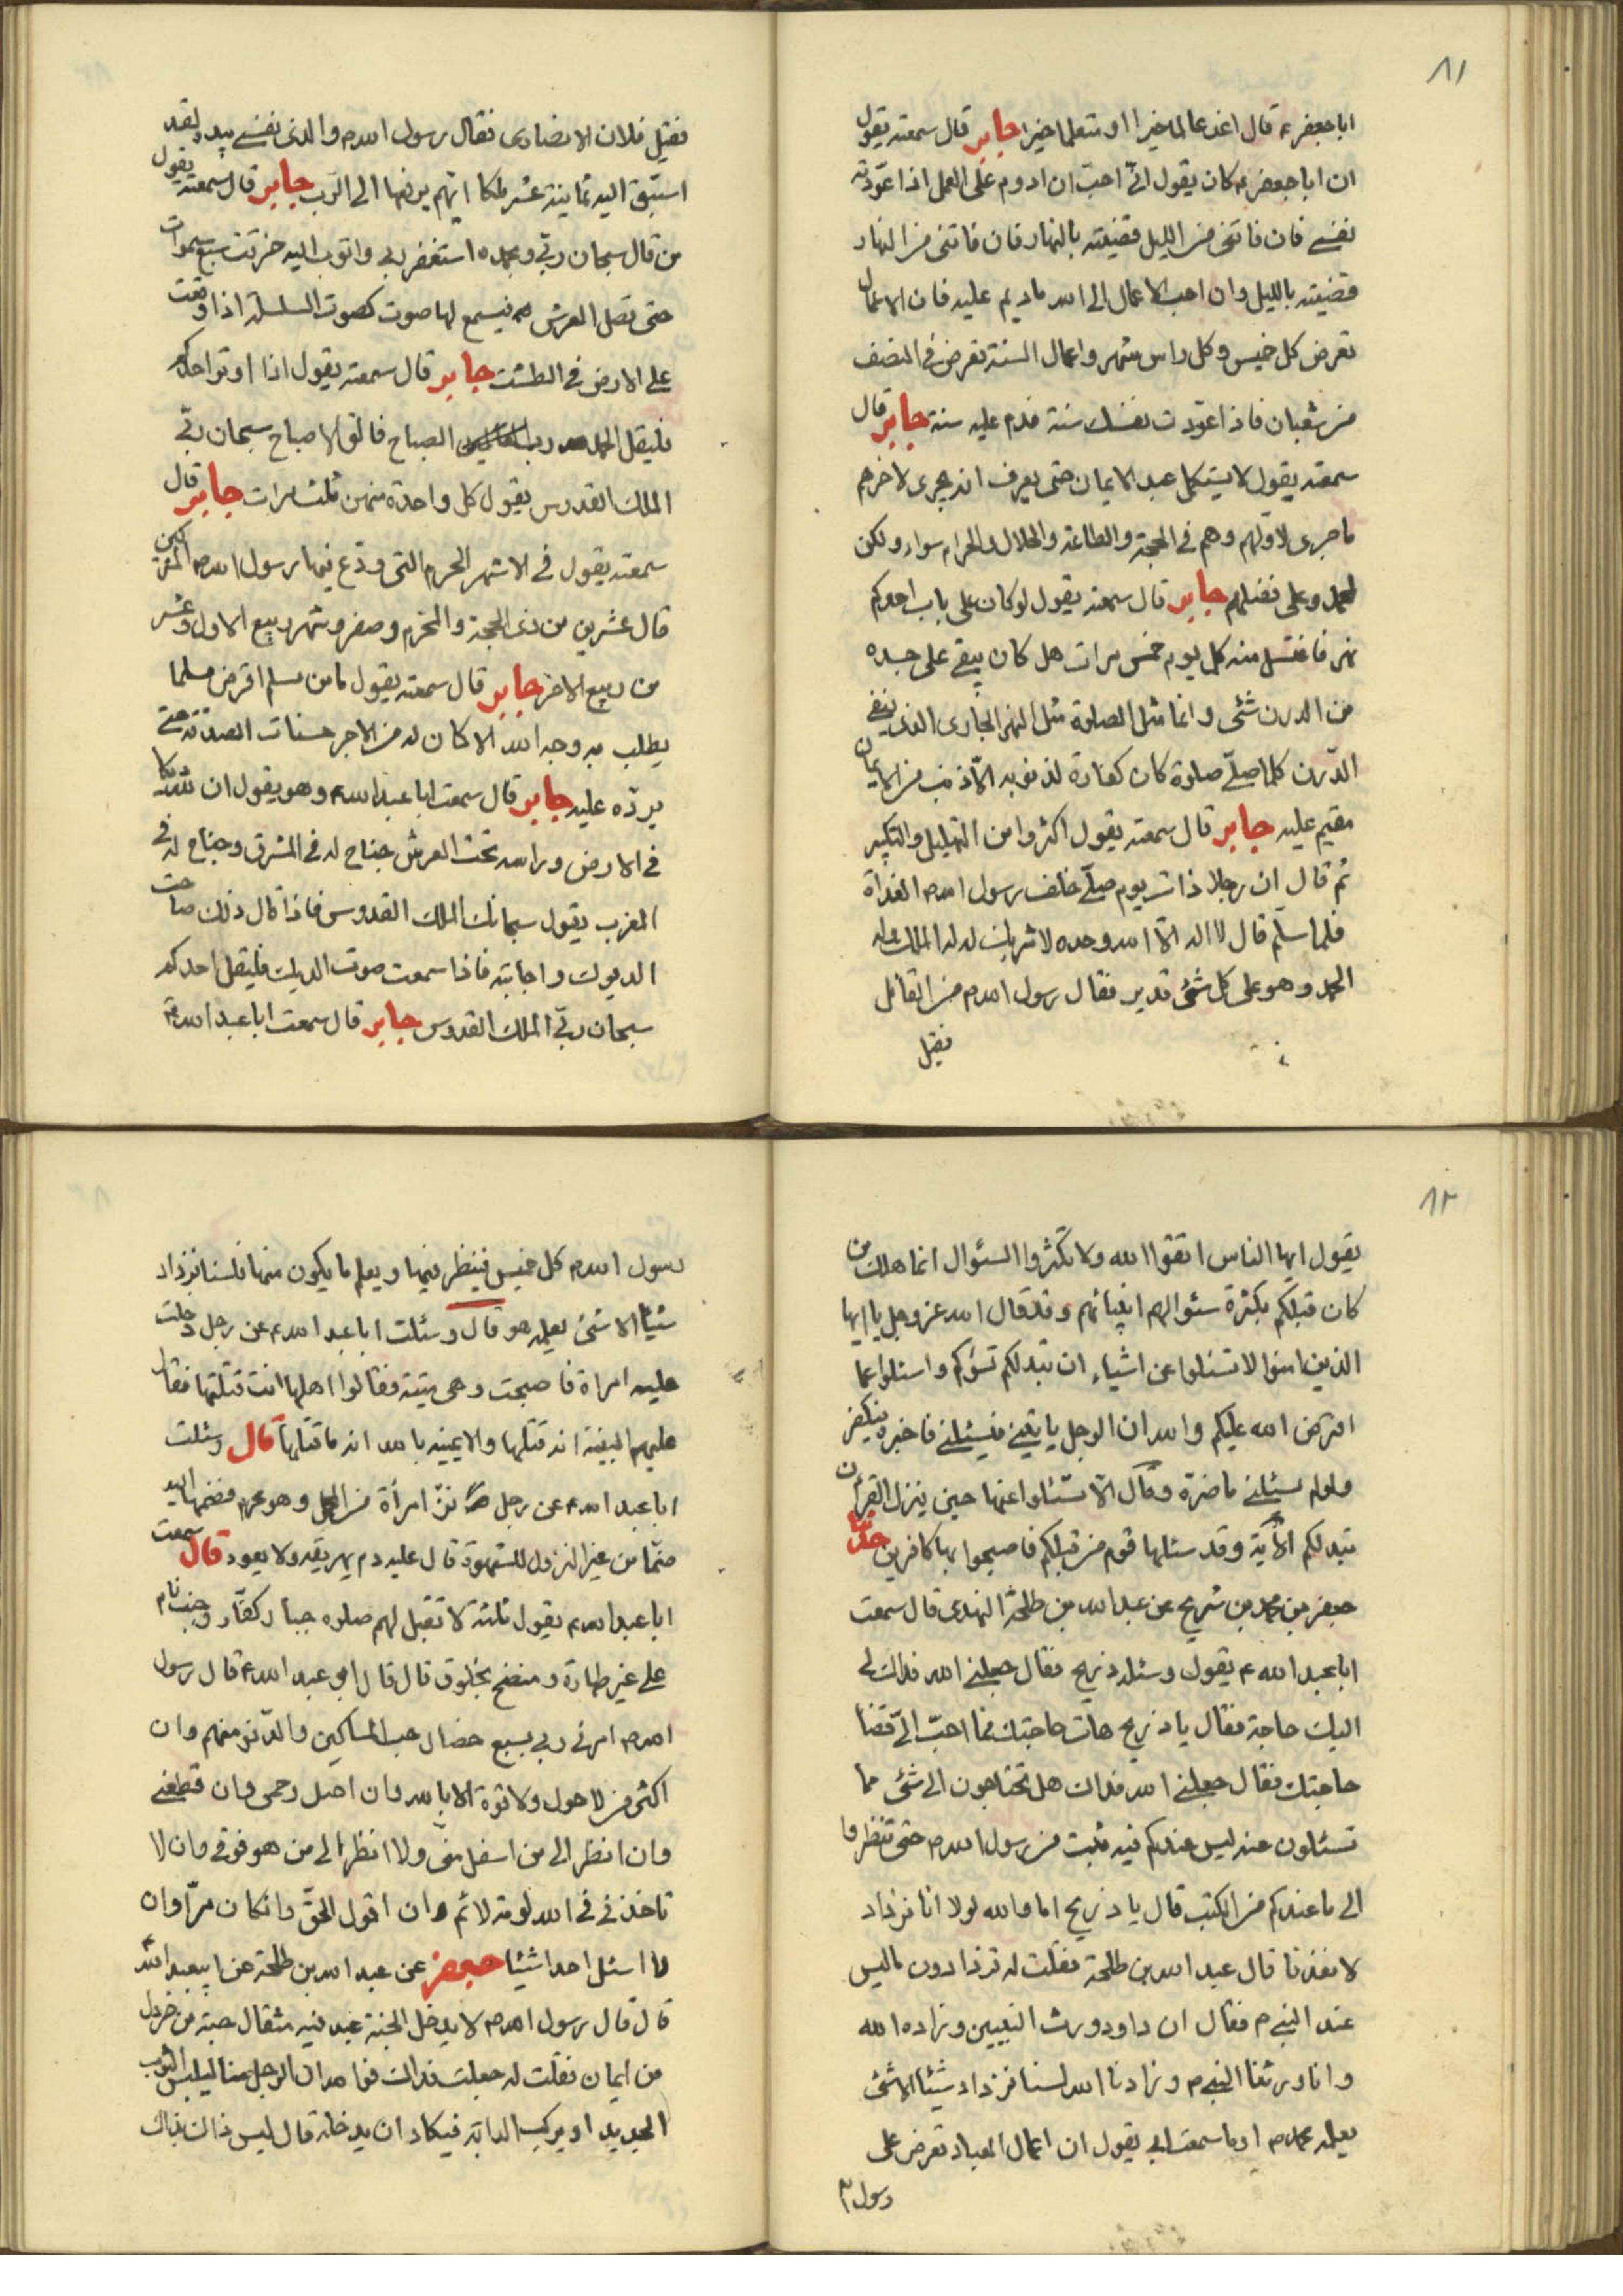 ٨١
ابا جعفر ع قال اغد عالما خيرا او متعلما خيرا جابر قال سمعته يقول
ان ابا جعفر ع كان يقول انى احبّ ان ادوم على العمل اذا عوّدته
نفسى فان فاتنى من الليل قضيته بالنهار فان فاتنى من النهار
قضيته بالليل وان احب الاعمال الى الله ماديم عليه فان الاعمال
تعرض كل خميس وكل راس شهر واعمال السنة تعرض فى النصف
من شعبان فاذا عوّدت نفسك سنة فدم عليه سنة جابر قال
سمعته يقول لا يستكمل عبد الايمان حتى يعرف انه يجرى لاخرهم
ما جرى لاولهم وهم فى الحجة والطاعة والحلال والحرام سواء ولكن
لمحمد وعلى فضلهم جابر قال سمعته يقول لو كان على باب احدكم
نهر فاغتسل منه كل يوم خمس مرات هل كان يبقى على جسده
من الدرن شئ وانما مثل الصلوة مثل النهر الجارى الذى ينفى
الدّرن كلما صلّى صلوة كان كفارة لذنوبه الّا ذنب من الايمان
مقيم عليه جابر قال سمعته يقول اكثروا من التهليل والتكبير
ثم قال ان رجلا ذات يوم صلّى خلف رسول الله ص الغداة
فلما سلّم قال لا اله الّا الله وحده لا شريك له له الملك وله
الحمد وهو على كل شئ قدير فقال رسول الله ص من القائل
فقيل
فقيل فلان الانصارى فقال رسول الله ص والذى نفسى بيده لقد
استبق اليه ثمانية عشر ملكا ايّهم يرفعها الى الرّب جابر قال سمعته يقول
من قال سبحان ربّى وبحمده استغفر ربى واتوب اليه خرقت سبع سموات
حتى تصل العرش فيسمع لها صوت كصوت السلسلة اذا وقعت
على الارض فى الطشت جابر قال سمعته يقول اذا اوتر احدكم
فليقل الحمد لله رب الصباح فالق الاصباح سبحان ربّى
الملك القدوس يقول كل واحدة منهن ثلث مرات جابر قال
سمعته يقول فى الاشهر الحرم التى ودّع فيها رسول الله ص المشركين
قال عشرين من ذى الحجة والمحرم وصفر وشهر ربيع الاول وعشر
من ربيع الاخر جابر قال سمعته يقول ما من مسلم اقرض مسلما
يطلب به وجه الله الا كان له من الاجر حسنات الصدقة حتى
يردّه عليه جابر قال سمعت ابا عبد الله ع وهو يقول ان لله ديكا
فى الارض وراسه تحت العرش جناح له فى المشرق وجناح له فى
المغرب يقول سبحانك الملك القدوس فاذا قال ذلك صاحت
الديوك واجابته فاذا سمعت صوت الديك فليقل احدكم
سبحان ربّى الملك القدوس جابر قال سمعت ابا عبد الله ع
٨٢
يقول ايها الناس اتقوا الله ولا تكثروا السئوال انما هلك من
كان قبلكم بكثرة سئوالهم انبيائهم وقد قال الله عز وجل يا ايها
الذين امنوا لا تسئلوا عن اشياء ان تبد لكم تسؤكم واسئلوا عما
افترض الله عليكم والله ان الرجل ياتينى فيسئلنى فاخبره فيكفر
ولو لم يسئلنى ما ضرّه وقال الّا تسئلوا عنها حين ينزل القرآن
تبد لكم الآية وقد سئلها قوم من قبلكم فاصبحوا بها كافرين حدثنا
جعفر بن محمد بن شريح عن عبد الله بن طلحة النهدى قال سمعت
ابا عبد الله ع يقول وسئله ذريح فقال جعلنى الله فداك لى
اليك حاجة فقال يا ذريح هات حاجتك فما احبّ الىّ قضا
حاجتك فقال جعلنى الله فداك هل تحتاجون الى شئ مما
تسئلون عنه ليس عندكم فيه ثبت من رسول الله ص حتى تنظروا
الى ما عندكم من الكتب قال يا ذريح اما والله لولا انا نزداد
لانفذنا قال عبد الله بن طلحة فقلت له تزدادون ما ليس
عند النبى ص فقال ان داود ورث النبيين وزاده الله
وانا ورثنا النبى ص وزادنا الله لسنا نزداد شيئا الا شئ
يعلمه محمد ص اوما سمعت ابى يقول ان اعمال العباد تعرض على
رسول
رسول الله ص كل خميس فينظر فيها ويعلم ما يكون منها فلسنا نزداد
شيئا الا شئ يعلمه هو قال وسئلت ابا عبد الله ع عن رجل دخلت
عليه امراة فاصبحت وهى ميتة فقالوا اهلها انت قتلتها فقال
عليهم البينة انه قتلها والا يمينه بالله انه ما قتلها قال وسئلت
ابا عبد الله ع عن رجل نزّل امرأة من المحمل وهو محرم فضمها اليه
ضمّا من غير النزول للشهوة قال عليه دم يهريقه ولا يعود قال سمعت
ابا عبد الله ع يقول ثلثة لا تقبل لهم صلوة جبار كفّار وجنب نام
على غير طهارة ومتضمخ بخلوق قال قال ابو عبد الله ع قال رسول
الله ص امرنى ربى بسبع خصال حب المساكين والدّنو منهم وان
اكثر من لا حول ولا قوة الا بالله وان اصل رحمى وان قطعنى
وان انظر الى من اسفل منى ولا انظر الى من هو فوقى وان لا
تاخذنى فى الله لومة لائم وان اقول الحقّ وانكان مرّا وان
لا اسئل احدا شيئا جعفر عن عبد الله بن طلحة عن ابيعبد الله
قال قال رسول الله ص لا يدخل الجنة عبد فيه مثقال حبة من خردل
من ايمان فقلت له جعلت فداك فوالله ان الرجل منا ليلبس الثوب
الجديد او يركب الدابة فيكاد ان يدخله قال ليس ذاك بذاك